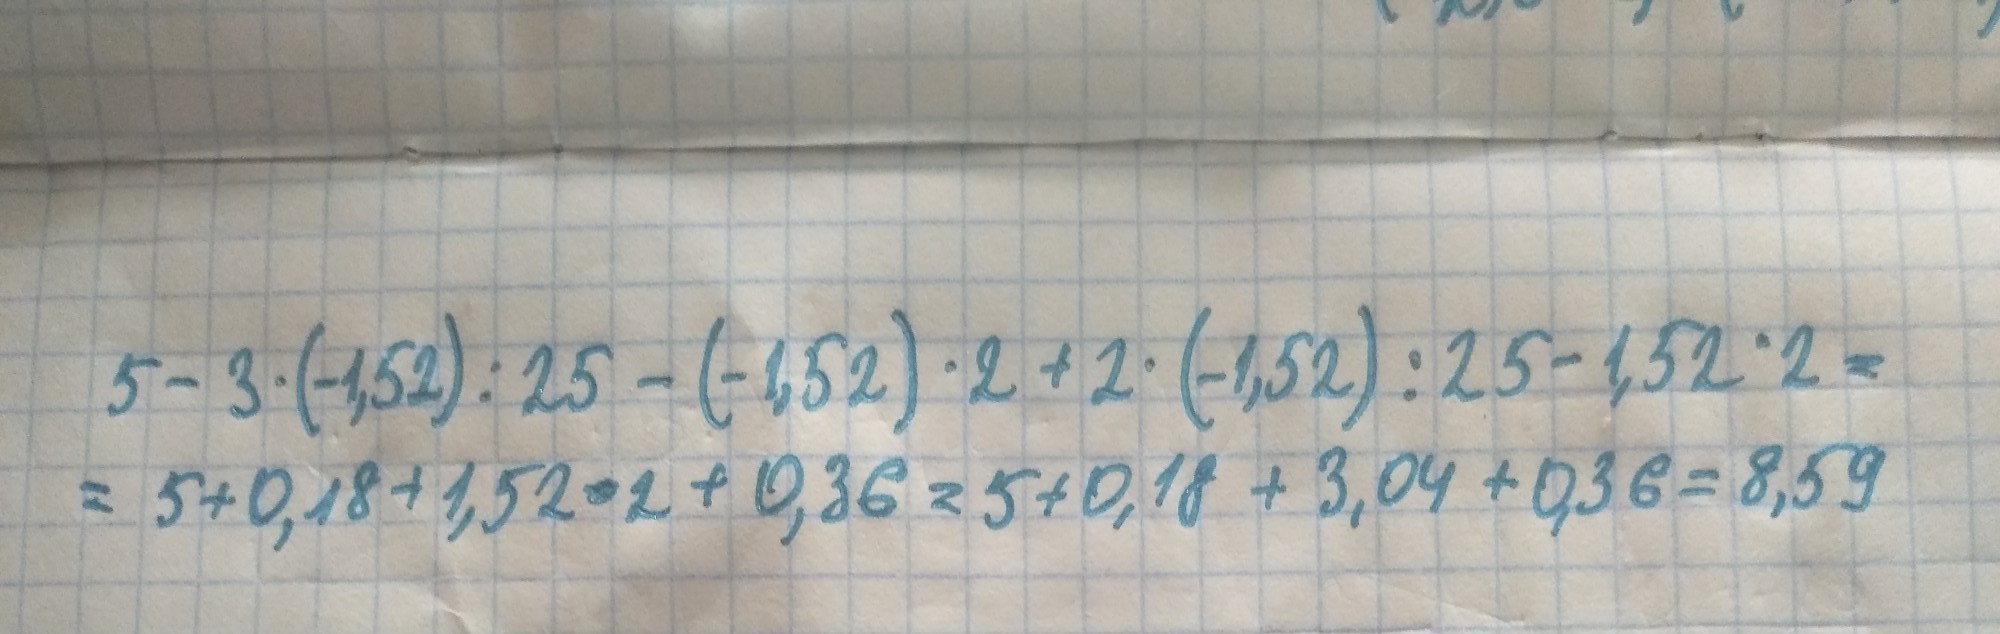 5-3·(-1,52):25-(-1,52)·2+2·(-1,52):25-1,52·2=
=5+0,18+1,52·2+0,36=5+0,18+3,04+0,36=8,59